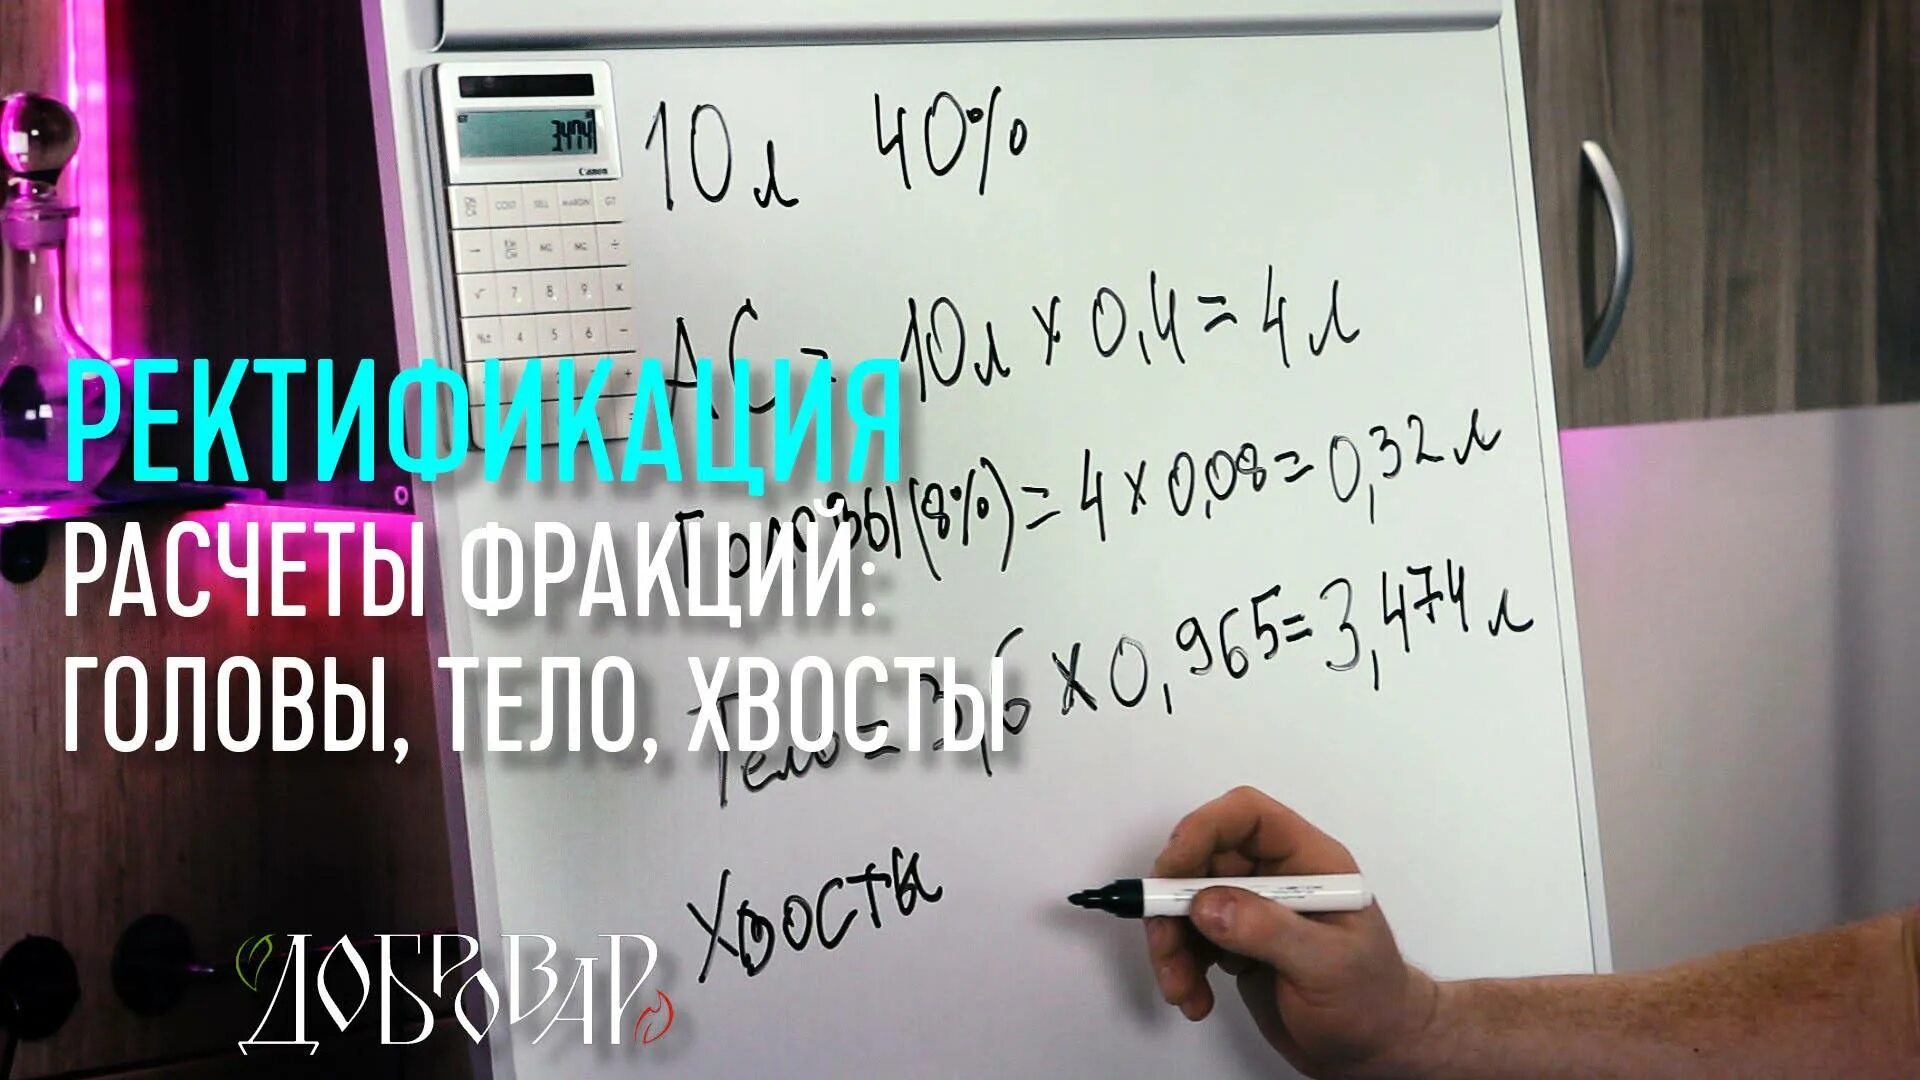 3474
Canon
COST SELL MARGIN GT
√ 7 8 9 ×
%± 4 5 6 −
10л 40%
АС = 10л х 0,4 = 4л
Головы (8%) = 4 х 0,08 = 0,32л
Тело = 3,6 х 0,965 = 3,474л
Хвосты
РЕКТИФИКАЦИЯ
РАСЧЕТЫ ФРАКЦИЙ:
ГОЛОВЫ, ТЕЛО, ХВОСТЫ
ДОБРОВАР